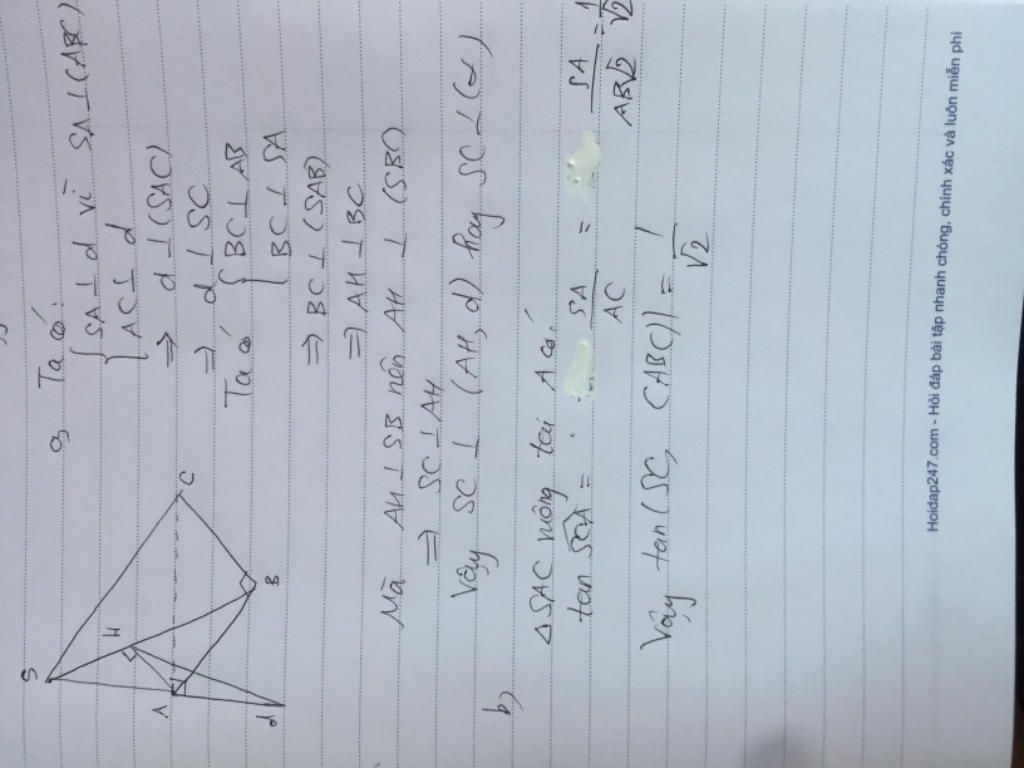 S
H
A
B
C
d
a) Ta có:
{ SA ⊥ d vì SA ⊥ (ABC)
{ AC ⊥ d
⇒ d ⊥ (SAC)
⇒ d ⊥ SC
Ta có { BC ⊥ AB
{ BC ⊥ SA
⇒ BC ⊥ (SAB)
⇒ AH ⊥ BC
Mà AH ⊥ SB nên AH ⊥ (SBC)
⇒ SC ⊥ AH
Vậy SC ⊥ (AH, d) hay SC ⊥ (α)
b)
△SAC vuông tại A có:
tan SCA = SA/AC = SA/AB√2 = 1/√2
Vậy tan(SC, (ABC)) = 1/√2
Hoidap247.com - Hỏi đáp bài tập nhanh chóng, chính xác và luôn miễn phí